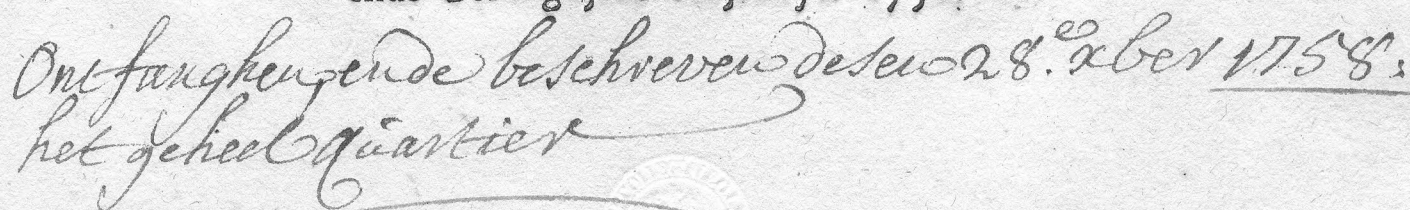 Ontfanghen, ende beschreven desen 28.en xber 1758:
het geheel quartier